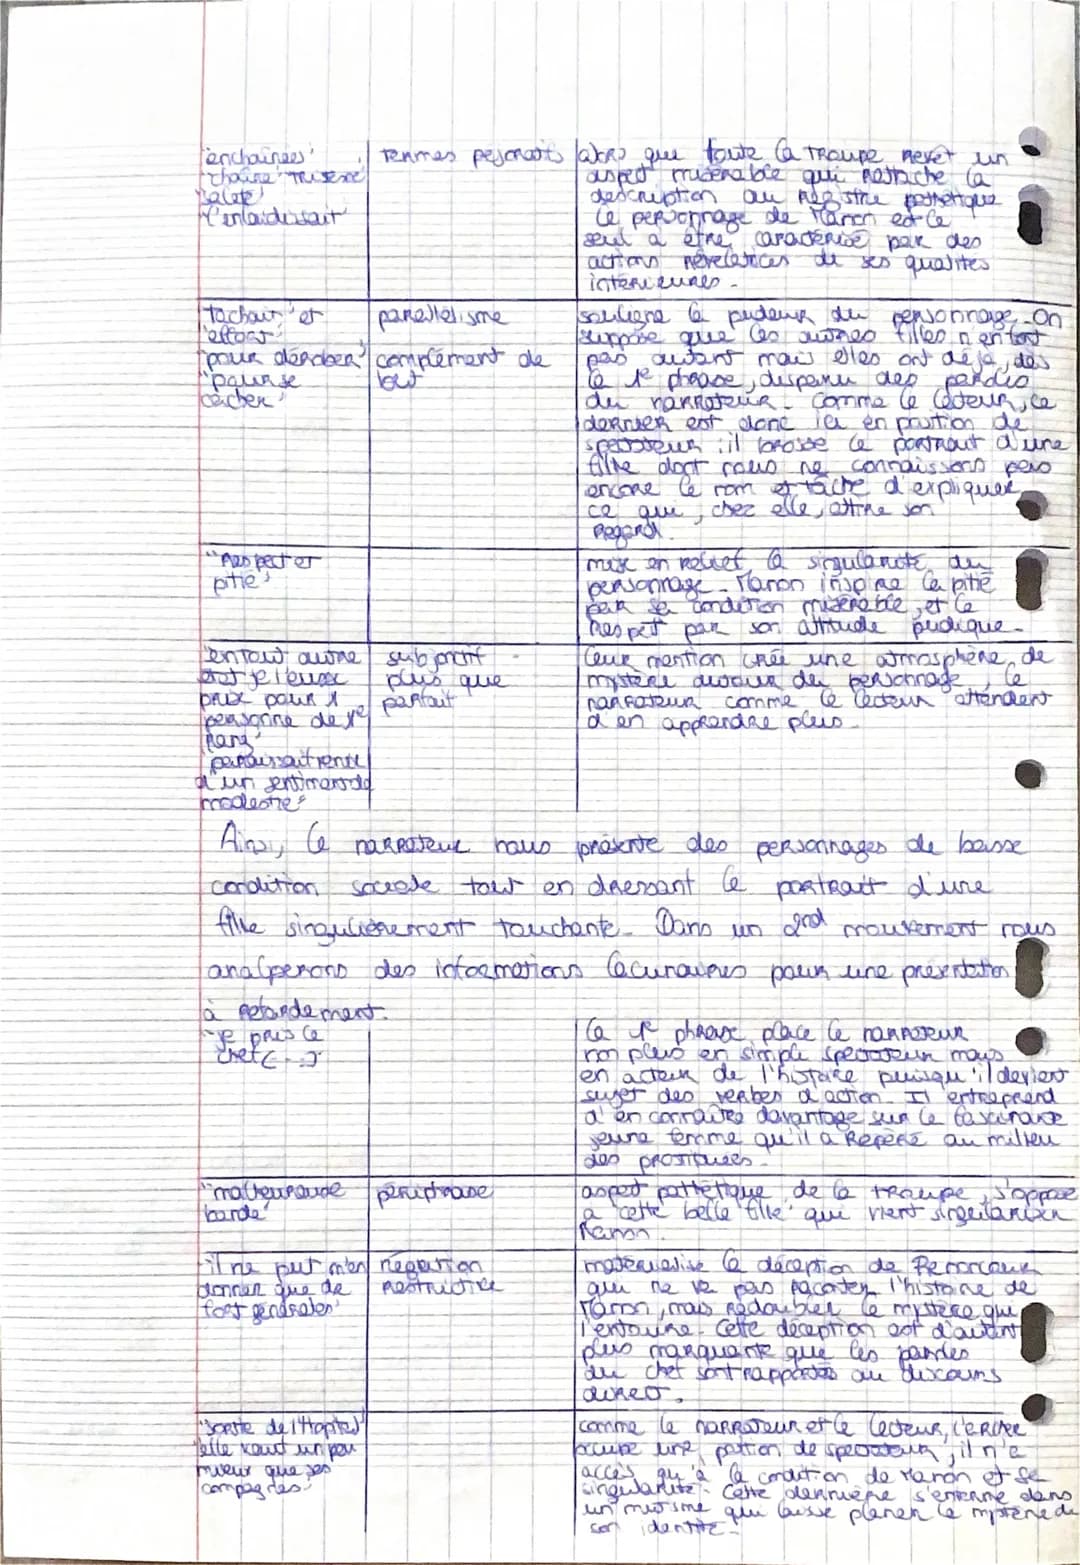 "enchaînées"
"chaîne" "misère"
"saleté"
"l'enlaidissait"
termes péjoratifs
alors que toute la troupe revêt un
aspect misérable qui rattache la
description au registre pathétique
le personnage de Manon est le
seul à être caractérisé par des
actions révélatrices de ses qualités
intérieures.
"tachait" et
"effort"
"pour dérober"
"pour se
cacher"
parallélisme
complément de
but
souligne la pudeur du personnage. On
suppose que les autres filles n'en font
pas autant mais elles ont déjà, dès
la 1e phrase, disparu des
du narrateur. Comme le lecteur, ce
dernier est donc ici en position de
spectateur : il brosse le portrait d'une
fille dont nous ne connaissons pas
encore le nom et tâche d'expliquer
ce qui, chez elle, attire son
regard.
"Respect et
pitié"
mise en relief la singularité du
personnage. Manon inspire la pitié
par sa condition misérable, et le
respect par son attitude pudique.
"en tout autre
état je l'eusse
prix pour 1
personne de 1e
rang"
"paraissait rendu
d'un sentiment de
modestie"
subjonctif
plus que
parfait
Ceux mention crée une atmosphère de
mystère autour du personnage, le
narrateur comme le lecteur attendent
d'en apprendre plus.
Ainsi, le narrateur nous présente des personnages de basse
condition sociale tout en dressant le portrait d'une
fille singulièrement touchante. Dans un 2nd mouvement nous
analyserons des informations lacunaires pour une présentation
à retardement.
"je pris le
chef (...)"
la 1e phrase place le narrateur
non plus en simple spectateur mais
en acteur de l'histoire puisqu'il devient
sujet des verbes d'action. Il entreprend
d'en connaître davantage sur la fascinante
jeune femme qu'il a repéré au milieu
des prostituées.
"malheureuse
bande"
périphrase
aspect pathétique de la troupe, s'oppose
à "cette belle fille" qui vient singulariser
Manon.
"il ne put m'en
donner que de
fort générales"
négation
restrictive
matérialise la déception de Renoncour
qui ne va pas raconter l'histoire de
Manon, mais redoubler le mystère qui
l'entoure. Cette déception est d'autant
plus marquante que les paroles
du chef sont rapportées au discours
direct.
"sortie de l'Hôpital"
"elle vaut un peu
mieux que ses
compagnes"
comme le narrateur et le lecteur, l'archer
occupe une position de spectateur, il n'a
accès qu'à la condition de Manon et sa
singularité. Cette dernière s'enferme dans
un mutisme qui laisse planer le mystère de
son identité.